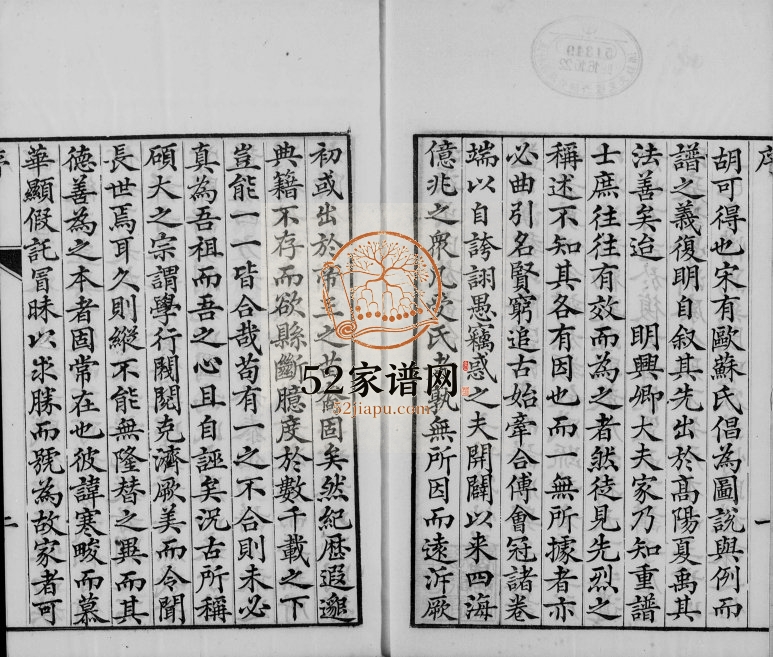 序
胡可得也宋有歐蘇氏倡為圖說與例而
譜之義復明自叙其先出於高陽夏禹其
法善矣迨 明興卿大夫家乃知重譜
士庶往往有效而為之者然徒見先烈之
稱述不知其各有因也而一無所據者亦
必曲引名賢窮追古始牽合傅會冠諸卷
端以自誇詡愚竊惑之夫開闢以来四海
億兆之衆凡受氏者孰無所因而遠泝厥
一
初或出於帝王之苗裔固矣然紀歷遐邈
典籍不存而欲縣斷臆度於數千載之下
豈能一一皆合哉苟有一之不合則未必
真為吾祖而吾之心且自誣矣況古所稱
碩大之宗謂學行閥閱克濟厥美而令聞
長世焉耳久則縱不能無隆替之異而其
德善為之本者固常在也彼諱寒畯而慕
華顯假託冒昧以求勝而號為故家者可
序
二
52家谱网
52jiapu.com